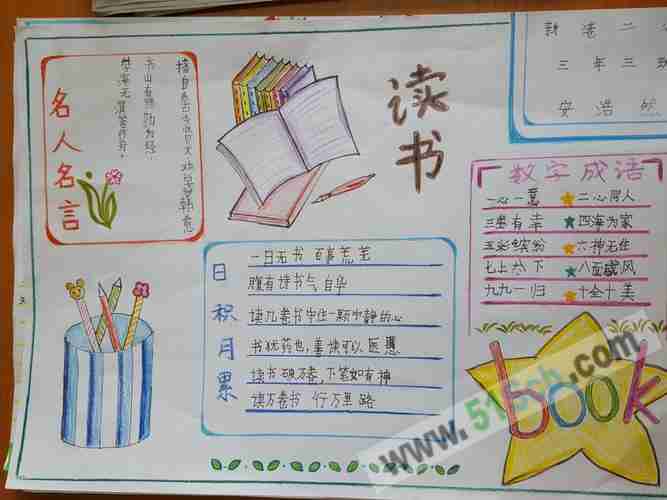 名人名言
书山有路勤为径,
学海无涯苦作舟。
读书
新港二
三年三班
安浩然
数字成语
一心一意 ★ 二心同人
三生有幸 ★ 四海为家
五彩缤纷 ★ 六神无主
七上八下 ★ 八面威风
九九一归 ★ 十全十美
日积月累
一日无书 百事荒芜
腹有诗书气自华
读几卷书守住一颗宁静的心
书犹药也,善读可以医愚
读书破万卷,下笔如有神
读万卷书 行万里路
book
www.515sch.com